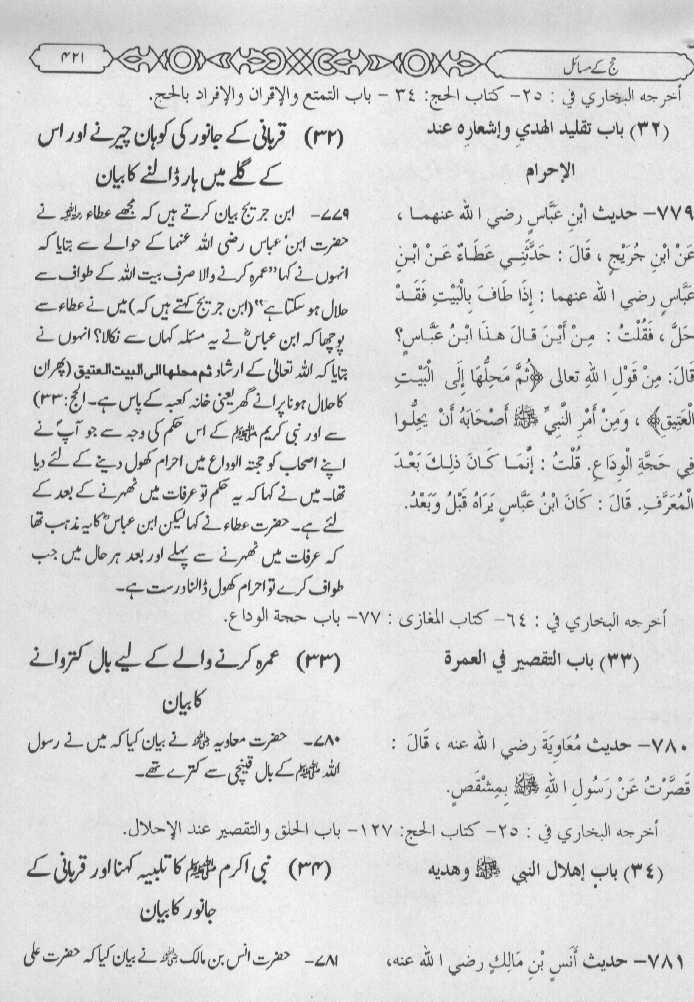 حج کے مسائل
۴۲۱
أخرجه البخاري في : ٢٥- كتاب الحج: ٣٤ - باب التمتع والإقران والإفراد بالحج.
(٣٢) باب تقليد الهدي وإشعاره عند
الإحرام
٧٧٩- حديث ابْنِ عَبَّاسٍ رضي الله عنهما ،
عَنْ ابْنِ جُرَيْجٍ ، قَالَ : حَدَّثَنِي عَطَاءٌ عَنْ ابْنِ
عَبَّاسٍ رضي الله عنهما : إِذَا طَافَ بِالْبَيْتِ فَقَدْ
حَلَّ ، فَقُلْتُ : مِنْ أَيْنَ قَالَ هَذَا ابْنُ عَبَّاسٍ؟
قَالَ: مِنْ قَوْلِ اللهِ تعالى ﴿ثُمَّ مَحِلُّهَا إِلَى الْبَيْتِ
الْعَتِيقِ﴾ ، وَمِنْ أَمْرِ النَّبِيِّ ﷺ أَصْحَابَهُ أَنْ يحِلُّوا
فِي حَجَّةِ الْوِدَاعِ. قُلْتُ : إِنَّمَا كَانَ ذَلِكَ بَعْدَ
الْمُعَرَّفِ. قَالَ : كَانَ ابْنُ عَبَّاسٍ يَرَاهُ قَبْلُ وَبَعْدُ.
(۳۲) قربانی کے جانور کی کوہان چیرنے اور اس
کے گلے میں ہار ڈالنے کا بیان
۷۷۹- ابن جریج بیان کرتے ہیں کہ مجھے عطاء رحمہ اللہ نے
حضرت ابن عباس رضی اللہ عنہما کے حوالے سے بتایا کہ
انہوں نے کہا ''عمرہ کرنے والا صرف بیت اللہ کے طواف سے
حلال ہو سکتا ہے'' (ابن جریج کہتے ہیں کہ) میں نے عطاء سے
پوچھا کہ ابن عباسؓ نے یہ مسئلہ کہاں سے نکالا؟ انہوں نے
بتایا کہ اللہ تعالیٰ کے ارشاد ثم محلها الی البیت العتیق (پھر ان
کا حلال ہونا پرانے گھر یعنی خانہ کعبہ کے پاس ہے۔ الحج : ۳۳)
سے اور نبی کریم ﷺ کے اس حکم کی وجہ سے جو آپؐ نے
اپنے اصحاب کو حجۃ الوداع میں احرام کھول دینے کے لئے دیا
تھا۔ میں نے کہا کہ یہ حکم تو عرفات میں ٹھہرنے کے بعد کے
لئے ہے۔ حضرت عطاء نے کہا لیکن ابن عباسؓ کا یہ مذہب تھا
کہ عرفات میں ٹھہرنے سے پہلے اور بعد ہر حال میں جب
طواف کرے تو احرام کھول ڈالنا درست ہے۔
أخرجه البخاري في : ٦٤- كتاب المغازى : ٧٧- باب حجة الوداع.
(٣٣) باب التقصير في العمرة
٧٨٠- حديث مُعَاوِيَةَ رضي الله عنه ، قَالَ :
قَصَّرْتُ عَنْ رَسُولِ اللهِ ﷺ بِمِشْقَصٍ.
(۳۳) عمرہ کرنے والے کے لیے بال کتروانے
کا بیان
۷۸۰۔ حضرت معاویہ رضی اللہ عنہ نے بیان کیا کہ میں نے رسول
اللہ ﷺ کے بال قینچی سے کترے تھے۔
أخرجه البخاري في : ٢٥- كتاب الحج: ١٢٧- باب الحلق والتقصير عند الإحلال.
(٣٤) باب إهلال النبي ﷺ وهديه
(۳۴) نبی اکرم ﷺ کا تلبیہ کہنا اور قربانی کے
جانور کا بیان
٧٨١- حديث أَنَسِ بْنِ مَالِكٍ رضي الله عنه،
۷۸۱- حضرت انس بن مالک رضی اللہ عنہ نے بیان کیا کہ حضرت علی